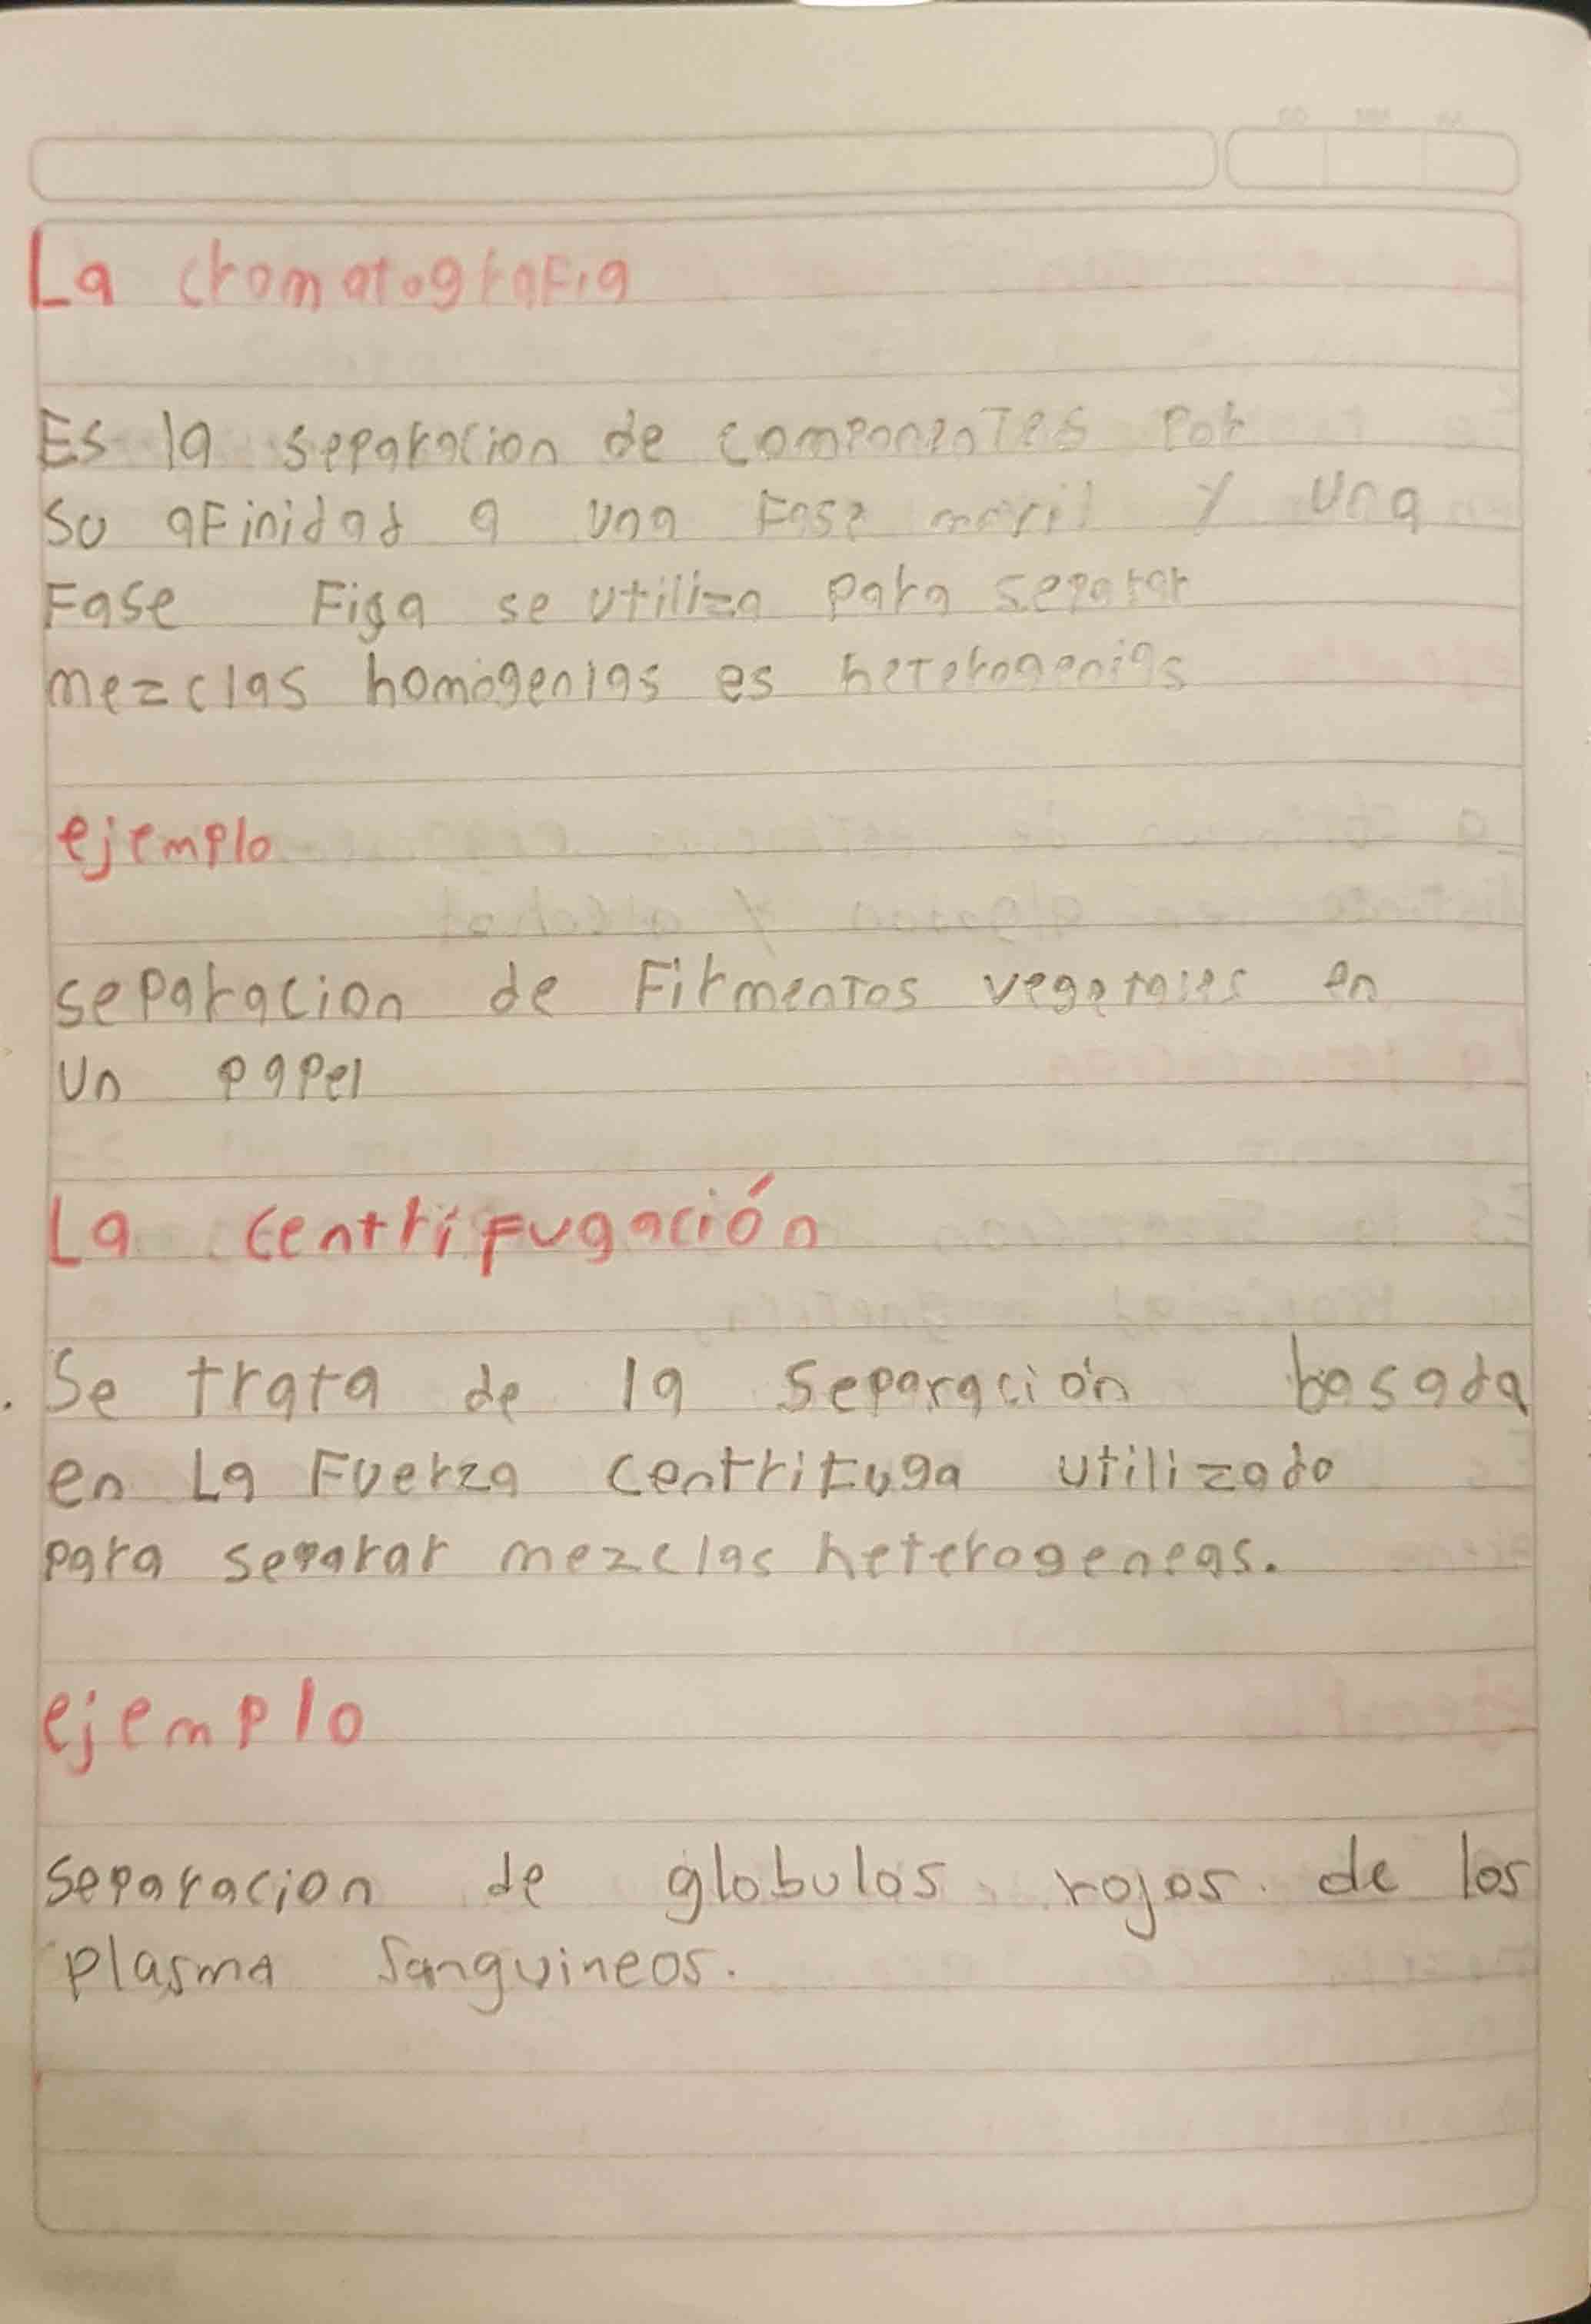 La cromatografia
Es la separacion de componentes por
su afinidad a una Fase movil y una
Fase Figa se utiliza para separar
mezclas homogenias es heterogenias
ejemplo
separacion de Firmentos vegetales en
un papel
La centrifugación
Se trata de la separación basada
en La Fuerza centrifuga utilizado
para separar mezclas heterogeneas.
ejemplo
separacion de globulos rojos. de los
plasma sanguineos.